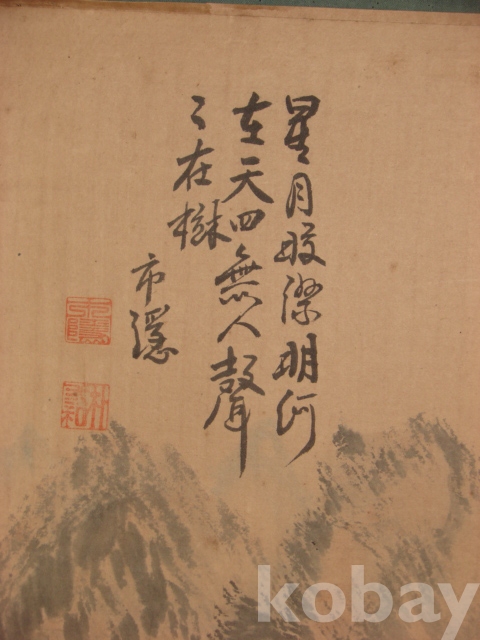 星月皎潔明河
在天四無人聲
〻在樹
市隱
kobay